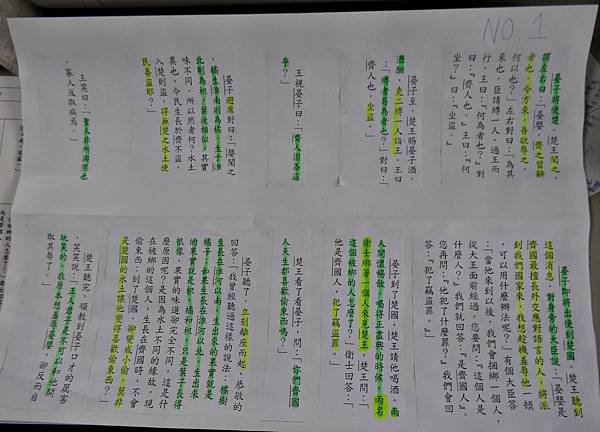 NO. 1
晏子將使楚。楚王聞之,
謂左右曰:「晏嬰,齊之習辭
者也,今方來,吾欲辱之,
何以也?」左右對曰:「為其
來也,臣請縛一人,過王而
行。王曰:『何為者也?』對
曰:『齊人也。』王曰:『何
坐?』曰:『坐盜。』」
晏子至,楚王賜晏子酒,
酒酣,吏二縛一人詣王。王曰
:「縛者曷為者也?」對曰:「
齊人也,坐盜。」
王視晏子曰:「齊人固善盜
乎?」
晏子避席對曰:「嬰聞之
,橘生淮南則為橘,生于淮
北則為枳,葉徒相似,其實
味不同。所以然者何?水土
異也。今民生長於齊不盜,
入楚則盜,得無楚之水土使
民善盜耶?」
王笑曰:「聖人非所與熙也
,寡人反取病焉。」
晏子即將出使到楚國。楚王聽到
這個消息,對身旁的大臣說:「晏嬰是
齊國最擅長外交應對語言的人,將派
到我們國家來,我想趁機羞辱他一頓
,可以用什麼辦法呢?」有個大臣答
:「當他來到以後,我們會捆綁一個人,
從大王面前經過,您要問:『這個人是
什麼人?』我們就回答:『是齊國人。』
您再問:『他犯了什麼罪?』我們會回
答:『犯了竊盜罪。』」
晏子到了楚國,楚王請他喝酒。兩
人開懷暢飲,喝得正盡興的時候,兩名
衛士綁著一個人來見楚王。楚王問:「
這個被綁的人怎麼了?」衛士回答:「
他是齊國人,犯了竊盜罪。」
楚王看了看晏子,問:「你們齊國
人天生都喜歡偷東西嗎?」
晏子聽了,立刻離座而起,恭敬的
回答:「我曾經聽過這樣的說法,橘樹
生長在淮河以南,生出來的果實就是
橘子;如果生長在淮河以北,生出來
的果實就是枳,橘和枳,只是葉子長得
很像,果實的味道卻完全不同。這是什
麼原因呢?是因為水土不同的緣故。現
在被綁的這個人,生長在齊國時,不會
偷東西;到了楚國,卻變成小偷,莫非
是楚國的水土讓他變得喜歡偷東西?」
楚王聽完,領教到晏子口才的厲害
,笑笑說:「聖人君子是不可以和他開
玩笑的,我原本想羞辱晏嬰,卻反而自
取其辱了。」